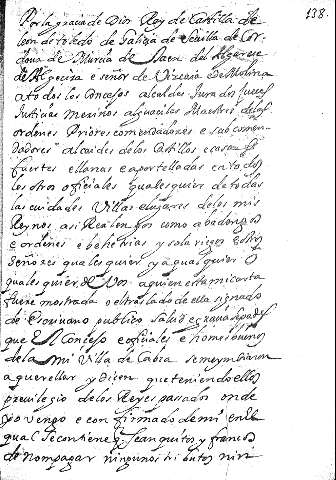 138.
Por la gracia de Dios Rey de Castilla de
leon de toledo de Galiza de Sevilla de Cor
dova de Murcia de Jaen del Algarve
de Algecira e señor de Vizcaia De Molina
a todos los Concejos alcaldes Jurados Jueces
Justicias merinos alguaciles Maestres de las
ordenes Priores comendadores e subcomen
dadores alcaides de los Castillos e casas
fuertes e llanas e aportelladas e a todos
los otros officiales quales quier de todas
las ciudades Villas e lugares de los mis
Reynos asi Realengos como abadengos
e ordenes e behetrias y solariegos e otros
señores quales quier y a qual quier o
quales quier de Vos a quien esta mi carta
fuere mostrada o el traslado de ella signado
de Escrivano publico Salud e gracia Sepades
que El Concejo e ofiziales e homes buenos
de la mi Villa de Cabra se me ymbiaron
a querellar y dizen que teniendo ellos
previlegio de los Reyes pasados onde
yo vengo e confirmado de mi en El
qual Se contiene q. Sean quitos y francos
de no pagar ningunos tributos nin